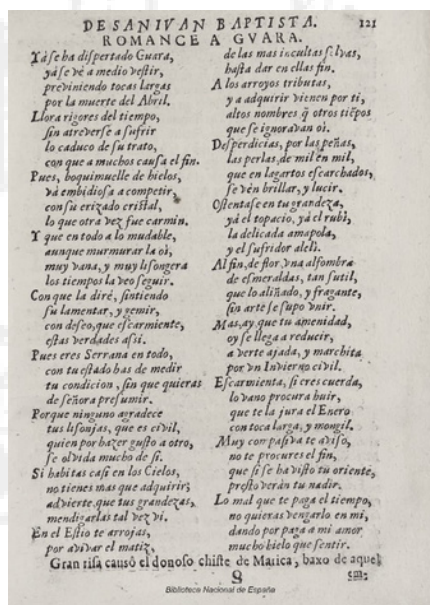 DE SAN IVAN BAPTISTA. 121
ROMANCE A GVARA.
Yà ſe ha diſpertado Guara,
yà ſe vè a medio veſtir,
previniendo tocas largas
por la muerte del Abril.
Llora rigores del tiempo,
ſin atreverſe a ſufrir
lo caduco de ſu trato,
con que a muchos cauſa el fin.
Pues, boquimuelle de hielos,
và embidioſa a competir,
con ſu erizado criſtal,
lo que otra vez fue carmin.
Y que en todo a lo mudable,
aunque murmurar la oì,
muy vana, y muy liſongera
los tiempos la veo ſeguir.
Con que la diré, ſintiendo
ſu lamentar, y gemir,
con deſeo, que eſcarmiente,
eſtas verdades aſsi.
Pues eres Serrana en todo,
con tu eſtado has de medir
tu condicion, ſin que quieras
de ſeñora preſumir.
Porque ninguno agradece
tus liſonjas, que es civil,
quien por hazer guſto a otro,
ſe olvida mucho de ſi.
Si habitas caſi en los Cielos,
no tienes mas que adquirir;
advierte, que tus grandezas,
mendigarlas tal vez vi.
En el Eſtio te arrojas,
por avivar el matiz,
de las mas incultas ſelvas,
haſta dar en ellas fin.
A los arroyos tributas,
y a adquirir vienen por ti,
altos nombres q̃ otros tiẽpos
que ſe ignoravan oì.
Deſperdicias, por las peñas,
las perlas, de mil en mil,
que en lagartos eſcarchados,
ſe vèn brillar, y lucir.
Oſtentaſe en tu grandeza,
yà el topacio, yà el rubì,
la delicada amapola,
y el ſufridor alelì.
Al fin, de flor, vna alfombra
de eſmeraldas, tan ſutil,
que lo aliñado, y fragante,
ſin arte ſe ſupo vnir.
Mas, ay que tu amenidad,
oy ſe llega a reducir,
a verte ajada, y marchita
por vn Invierno civil.
Eſcarmienta, ſi eres cuerda,
lo vano procura huir,
que te la jura el Enero
con toca larga, y mongil.
Muy compaſiva te aviſo,
no te procures el fin,
que ſi ſe ha viſto tu oriente,
preſto veràn tu nadir.
Lo mal que te paga el tiempo,
no quieras vengarlo en mi,
dando por paga a mi amor
mucho hielo que ſentir.
Gran riſa causò el donoſo chiſte de Marica, baxo de aquel
Q em-
Biblioteca Nacional de España